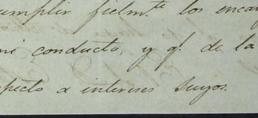 cumplir fielm.te los encar
mi conducto, y q.e de la
specto a intereses suyos.